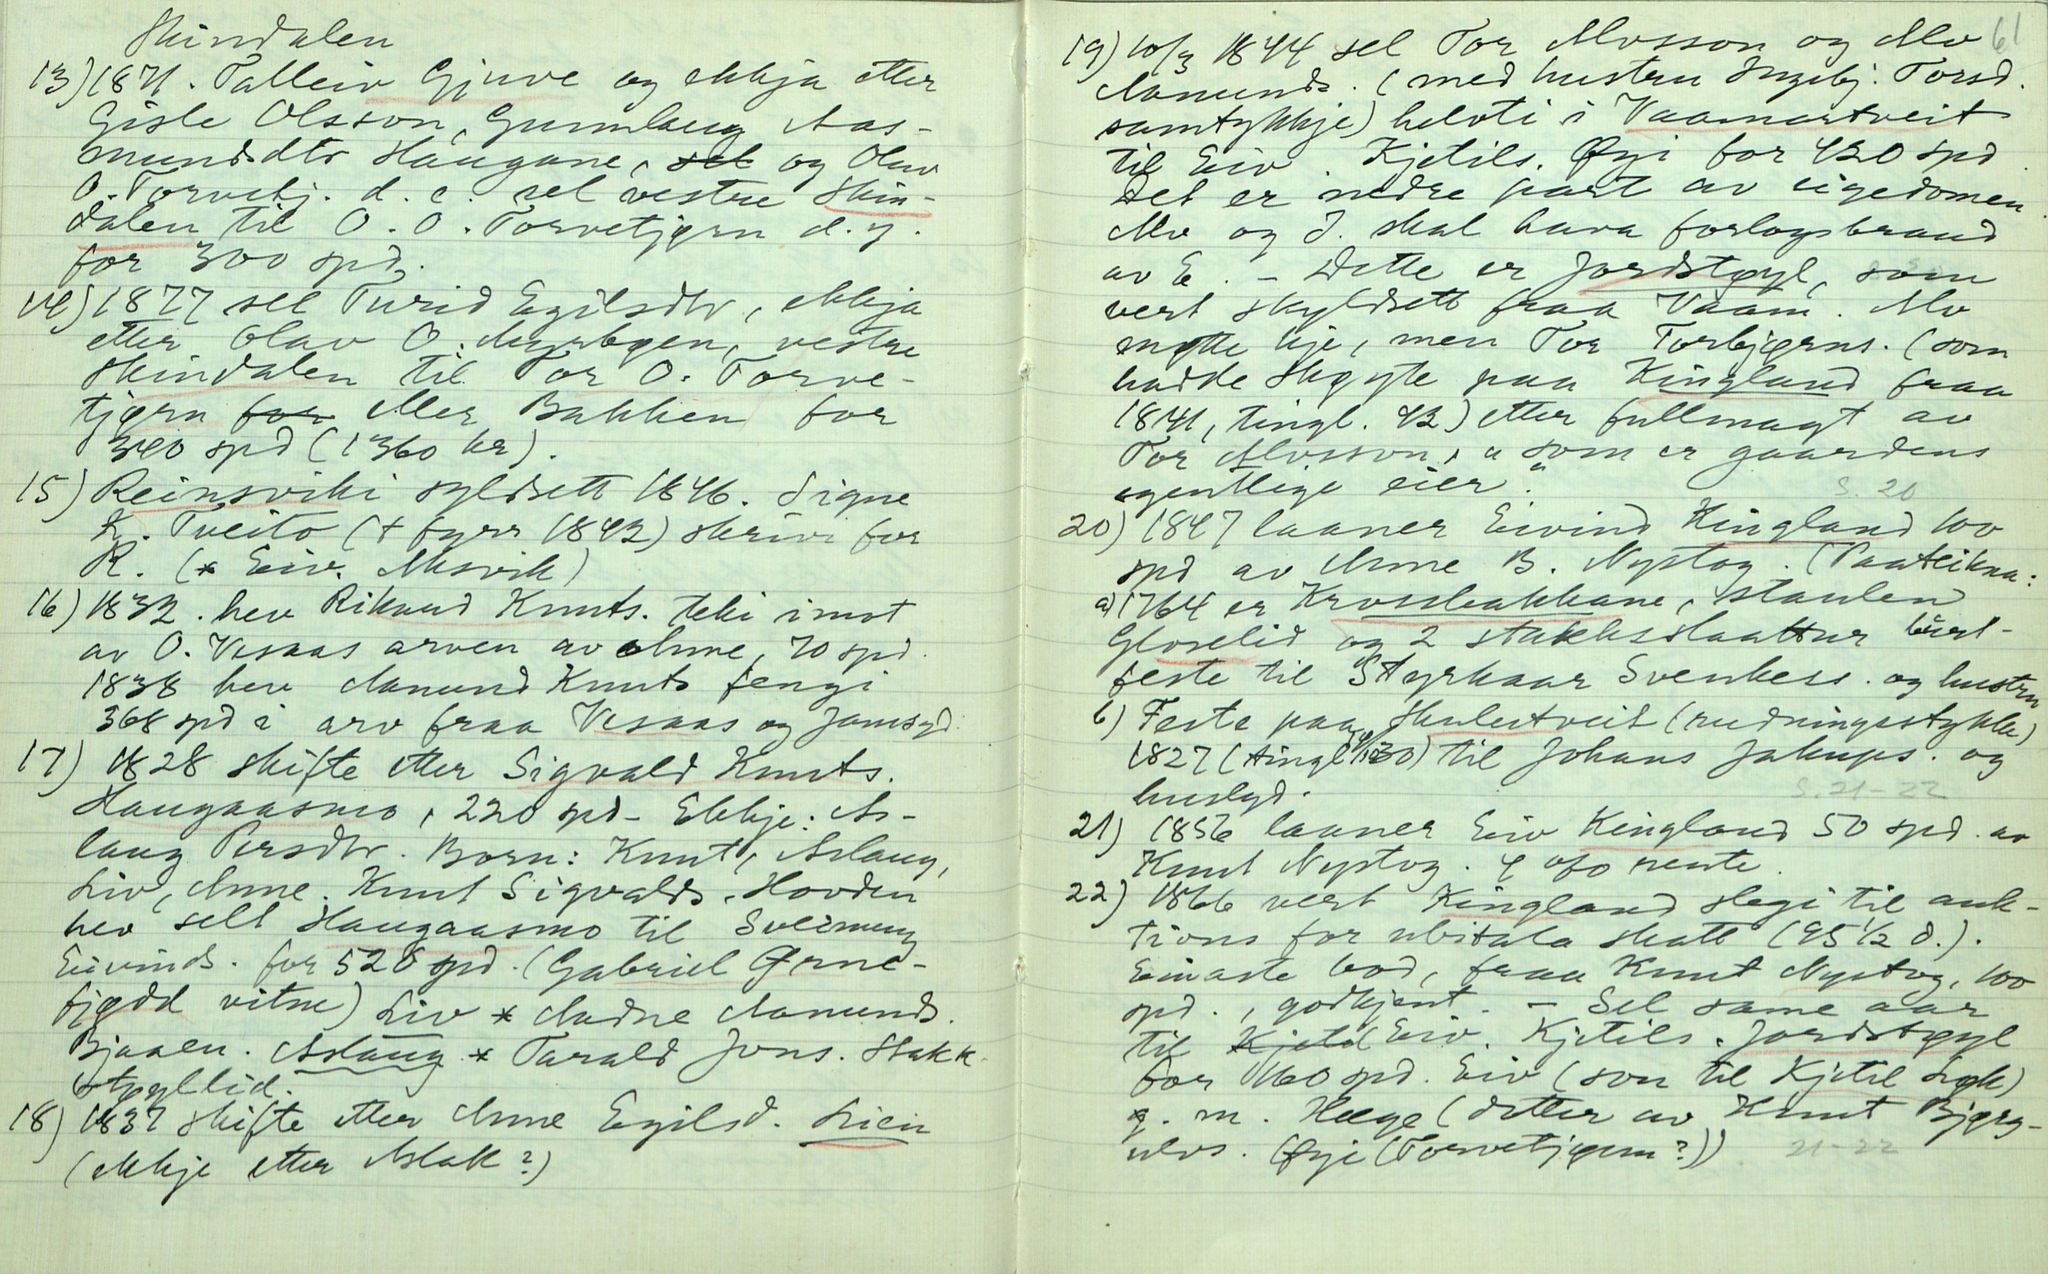 Skindalen
13) 1871. Talleiv Gjuve og ekkja etter
Gisle Olsson, Gunnlaug Aas-
mundsdtr Haugane, sel og Olav
O. Torvetj. d. e. sel vestre Skin-
dalen til O. O. Torvetjørn d. y.
for 300 spd.
14) 1877 sel Turid Egilsdtr, ekkja
etter Olav O. Myrbøen, vestre
Skindalen til Tor O. Torve-
tjørn for eller Bakken for
340 spd (1360 kr).
15) Reinsviki syldsett 1846. Signe
K. Tveito (+ fyrr 1843) skriv for
R. (* Eiv. Aksvik)
16) 1832. hev Rikard Knuts. teki imot
av O. Vesaas arven av Anne, 70 spd.
1838 hev Aamund Knuts fengi
368 spd i arv fraa Vesaas og Jamsgd.
17) 1828 skifte etter Sigvald Knuts.
Haugaasmo, 220 spd - Ekkje: As-
laug Persdtr. Born: Knut, Aslaug,
Liv, Anne. Knut Sigvalds. Hovden
hev selt Haugaasmo til Sveinung
Eivinds. for 528 spd. (Gabriel Ørne-
fjødd vitne) Liv * Aadne Aamunds.
Bjaaen. Aslaug * Tarald Jons. Stakk-
støyllid.
18) 1837 skifte etter Anne Egilsd. Lien
(ekkje etter Aslak?)
61
19) 10/3 1844 sel Tor Alvsson og Alv
Aamunds. (med hustru Ingebj. Torsd.
samtykkje) helvti i Vaamartveit
til Eiv Kjetils. Øyi for 420 spd.
Det er nedre part av eigedomen.
Alv og I. skal hava forlogsbraud
av E. - Dette er Jordstøyl, som
vert skyldsett fraa Vaam. Alv
møtte kje, men Tor Torbjørns. (som
hadde skøyte paa Kingland fraa
1841, tingl. 43) etter fullmagt av
Tor Alvsson, "som er gaardens
egentlige eier".
S. 20
20) 1847 laaner Eivind Kingland 100
spd av Anne B. Nystog. (Paateikna:
a) 1764 er Krossbakkane, staulen
Gloselid og 2 stakkslaattur burt-
feste til Styrkaar Svenkess. og hustru
b) Feste paa Skulestveit (rudningsstykke)
1827 (tingl. 30) til Johans Jakups. og
huslyd.
S. 21-22
21) 1856 laaner Eiv Kingland 50 spd. av
Knut Nystog. 4 o/o rente.
22) 1866 vert Kingland slegi til auk-
tions for ubitala skatt (95 1/2 d.).
Einaste bod, fraa Knut Nystog, 100
spd., godkjent. - Sel same aar
til Kjetil Eiv. Kjetils. Jordstøyl
for 160 spd. Eiv (son til Kjetil Løk)
g. m. Hæge (dotter av Knut Bjørg-
ulvs. Øyi (Torvetjønn?))
21-22